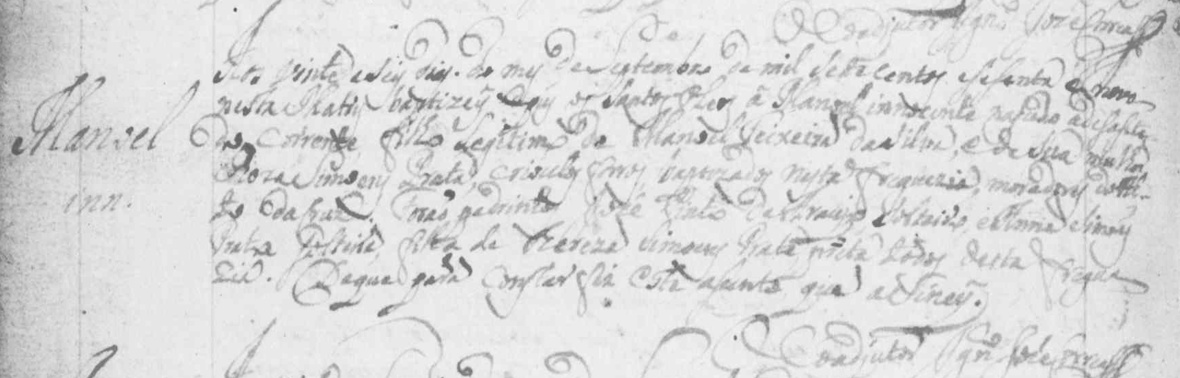 O Coadjutor Ign.º Jozé Correa
Aos vinte e seis dias do mez de Septembro de mil sete centos e sesenta e nove
nesta Matris baptizey e puz os Santos Oleos a Manoel innocente nascido a
Manoel
do corrente filho legitimo de Manoel Teixeira da Silva, e de sua mulher
Roza Simoens Prata, crioulos forros baptizados nesta freguezia, moradores
inn.
da Cruz. Foraõ padrinhos Jozé Pinto de Araujo Solteiro, e Anna Simoens
Prata filha de Thereza Simoens Prata preta todos desta fregue
zia. De que para constar fiz este asento que asiney.
O Coadjutor Ign.º Jozé Correa